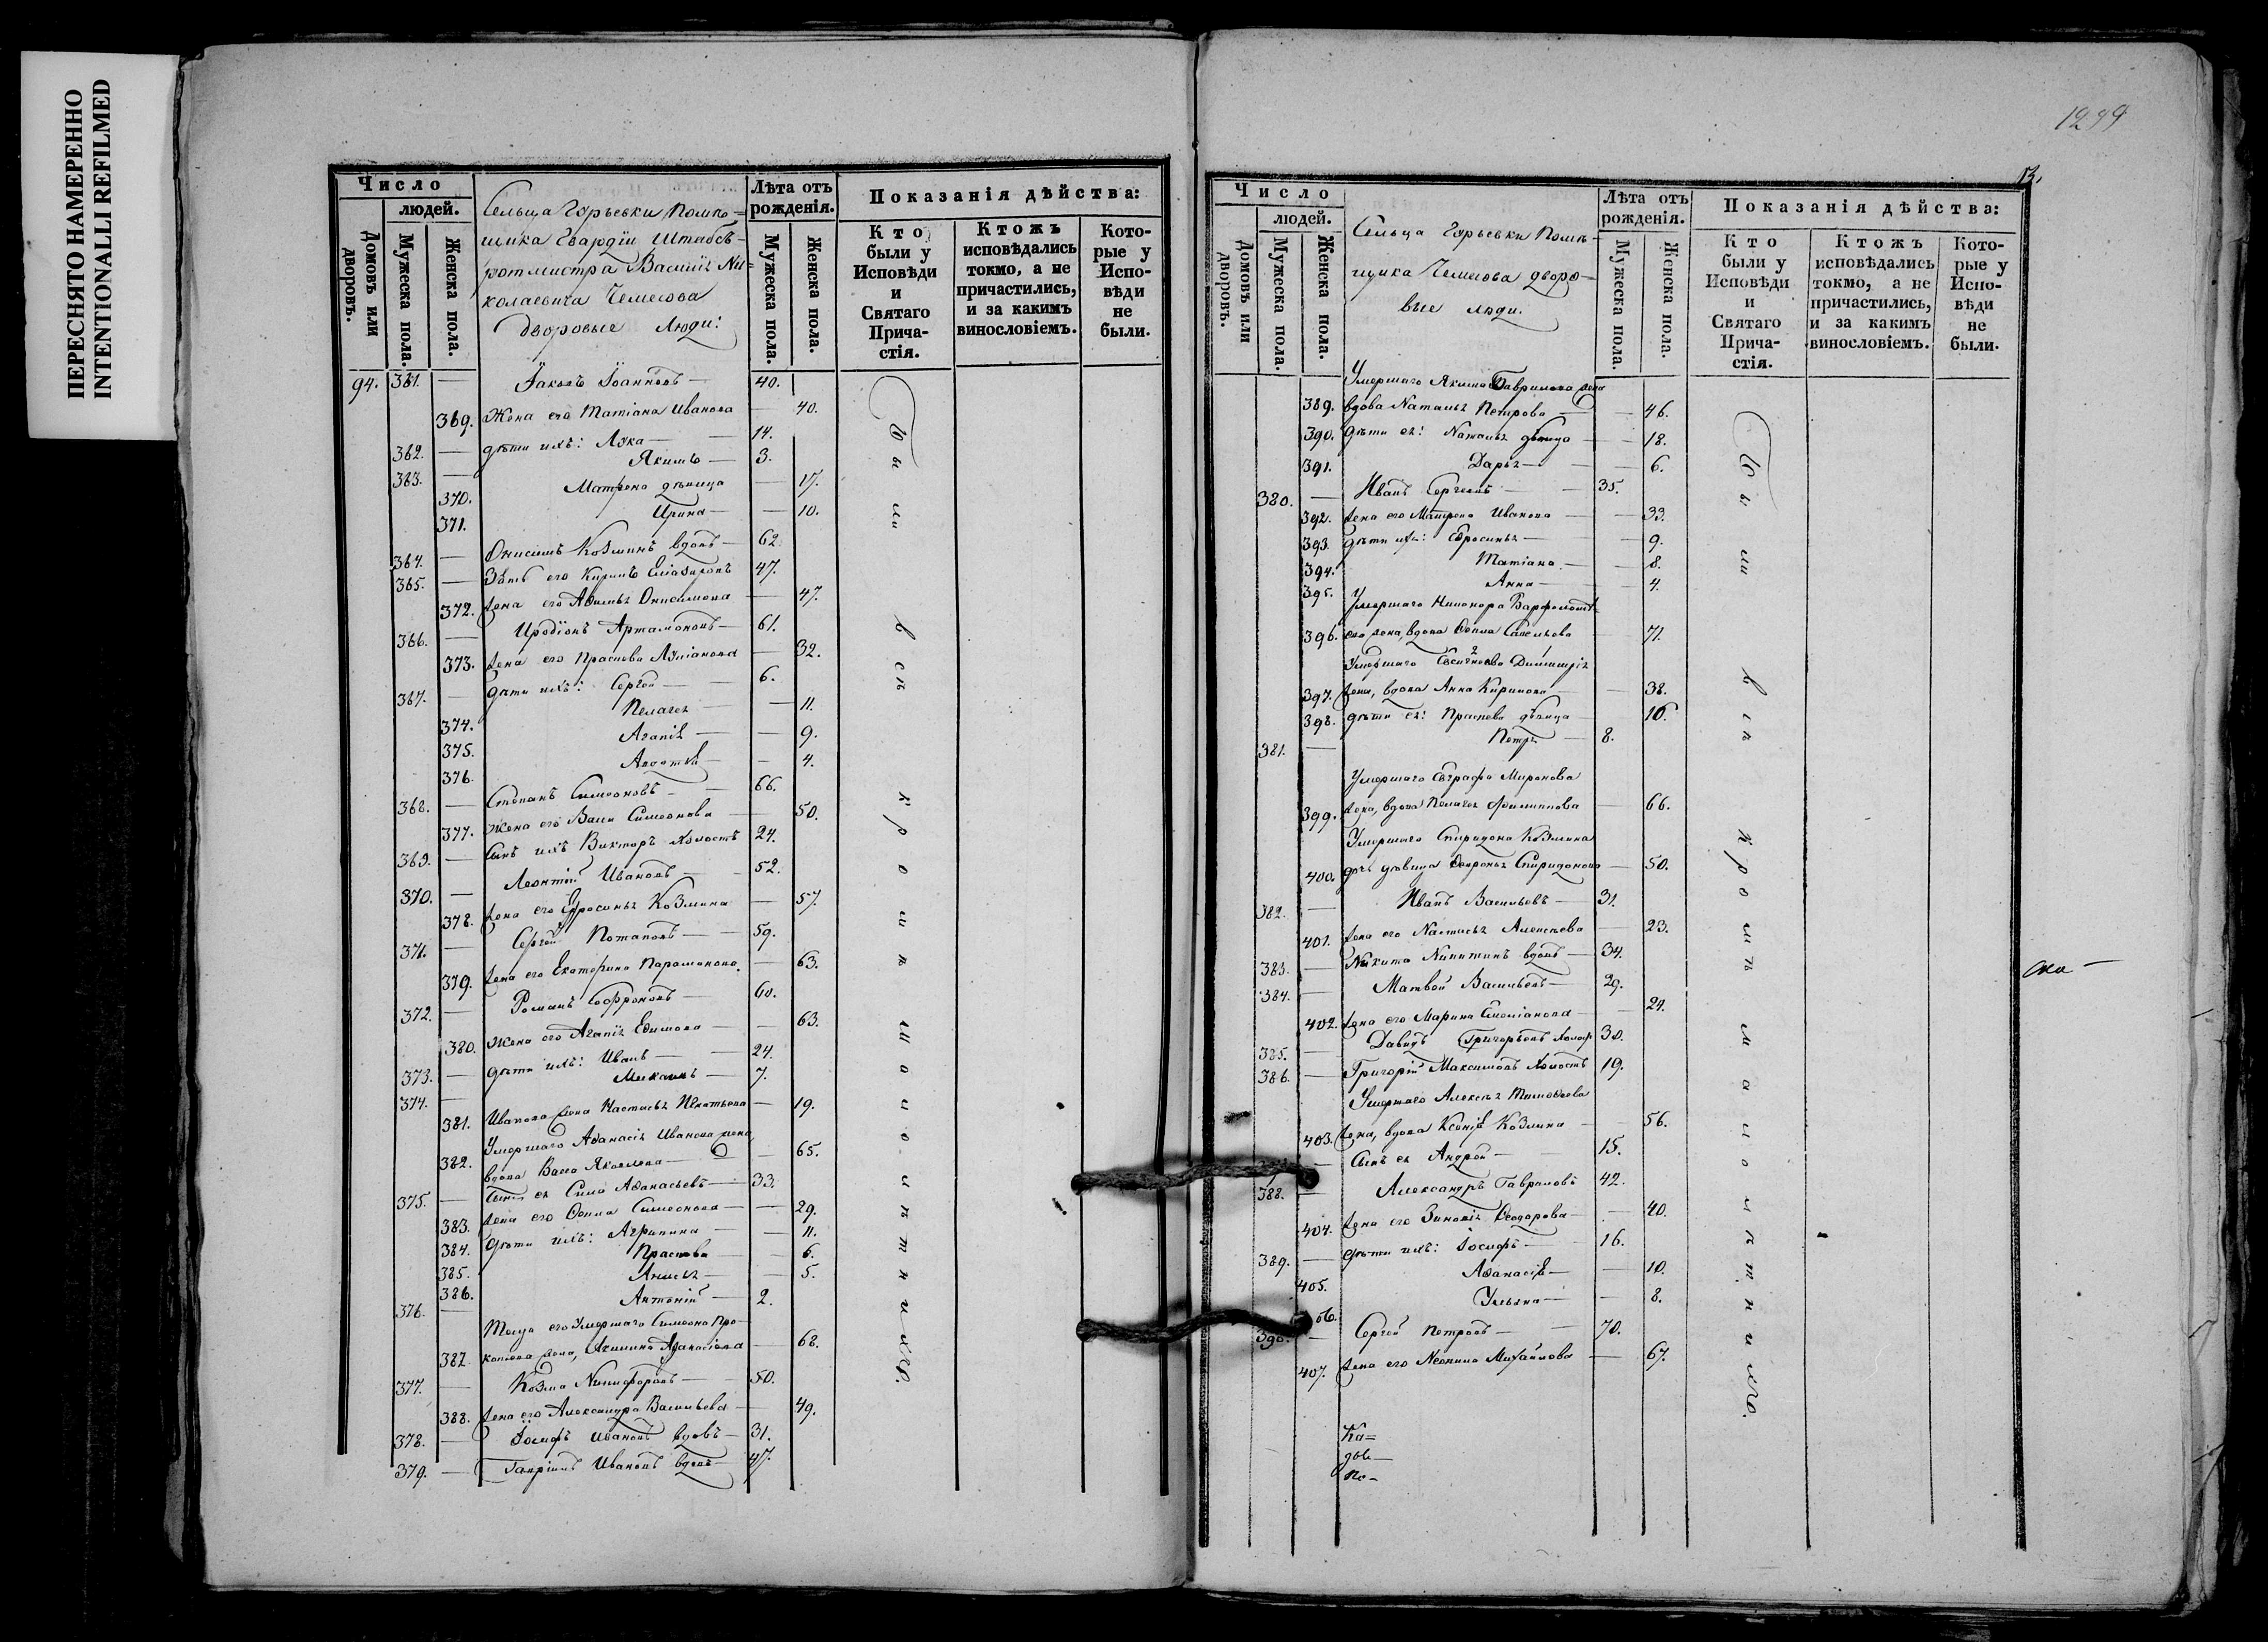 ПЕРЕСНЯТО НАМЕРЕННО
INTENTIONALLI REFILMED
Число
людей.
Домовъ или дворовъ.
Мужеска пола.
Женска пола.
Сельца Горьевки Помѣ=
щика Гвардіи Штабсъ-
ротмистра Василія Ни=
колаевича Чемесова
дворовые люди:
Лѣта отъ рожденія.
Мужеска пола.
Женска пола.
Показанія дѣйства:
Кто были у Исповѣди и Святаго Прича-стія.
Ктожъ исповѣдались токмо, а не причастились, и за какимъ винословіемъ.
Кото-рые у Испо-вѣди не были.
94. 361. — Іаковъ Іоанновъ — 40.
369. Жена его Татіана Иванова — 40.
362. — дѣти ихъ: Лука — 14.
363. — Якимъ — 3.
370. Матрена дѣвица — 17.
371. Ирина — 10.
364. — Онисимъ Козминъ вдовъ — 62.
365. — Зять его Кирилъ 47.
372. жена его Онисимова — 47.
366. — Иродіонъ Артамоновъ — 61.
373. жена его Прасковья — 32.
367. — дѣти ихъ: Сергей — 6.
374. Пелагея — 11.
375. Агапія — 9.
376. — 4.
368. — Степанъ Симеоновъ — 66.
377. Жена его Васса Симеонова — 50.
369. — Сынъ ихъ Викторъ холостъ 24.
370. — Леонтій Ивановъ — 52.
378. жена его Ефросинья Козмина — 57.
371. — Сергей Потаповъ — 59.
379. жена его Екатерина Парамонова — 63.
372. — Романъ Софроновъ — 60.
380. Жена его Агапія Ефимова — 63.
373. — дѣти ихъ: Иванъ — 24.
374. — Михаилъ — 7.
381. Иванова жена Настасья Игнатьева — 19.
Умершаго Аѳанасія Иванова жена
382. вдова Васса Яковлева — 65.
375. — Сынъ ея Сила Аѳанасьевъ — 33.
383. жена его Симеонова — 29.
384. дѣти ихъ: Агрипина — 11.
385. Прасковья — 6.
386. Анисья — 5.
376. — Антоній — 2.
Теща его Умершаго Симеона Про-
387. копьева жена, Акилина Аѳанасіева — 68.
377. — Козма Никифоровъ — 50.
388. жена его Александра Васильева — 49.
378. — Іосифъ Ивановъ вдовъ — 31.
379. — Гавріилъ Ивановъ вдовъ — 47.
Были всѣ кромѣ малолѣтнихъ.
1299
13.
Число
людей.
Домовъ или дворовъ.
Мужеска пола.
Женска пола.
Сельца Горьевки Помѣ-
щика Чемесова дворо-
вые люди.
Лѣта отъ рожденія.
Мужеска пола.
Женска пола.
Показанія дѣйства:
Кто были у Исповѣди и Святаго Прича-стія.
Ктожъ исповѣдались токмо, а не причастились, и за какимъ винословіемъ.
Кото-рые у Испо-вѣди не были.
Умершаго Якима Гаврилова жена
389. вдова Наталья Петрова — 46.
390. дѣти ея: Наталья дѣвица — 18.
391. Дарья — 6.
380. — Иванъ Сергеевъ — 35.
392. жена его Матрена Иванова — 33.
393. дѣти ихъ: Ефросинья — 9.
394. Татіана — 8.
395. Анна — 4.
Умершаго Никонора
396. его жена, вдова Савельева — 71.
Умершаго Димитрія
397. жена, вдова Анна Кирилова — 38.
398. дѣти ея: Прасковья дѣвица — 16.
381. — Петръ — 8.
Умершаго Евграфа Миронова
399. жена, вдова Пелагея Филиппова — 66.
Умершаго Спиридона Козмина
400. дочь дѣвица Спиридонова — 50.
382. — Иванъ Васильевъ — 31.
401. жена его Настасья Алексѣева — 23.
383. — Никита Никитинъ вдовъ — 34.
384. — Матвей Васильевъ — 29.
402. жена его Марина — 24.
385. — Давидъ Григорьевъ холост 38.
386. — Григорій Максимовъ холостъ 19.
Умершаго Алексѣя Тимоѳеева
403. жена, вдова Ксенія Козмина — 56.
— Сынъ ея Андрей — 15.
388. — Александръ Гавриловъ 42.
404. жена его Зиновія Ѳеодорова — 40.
389. — дѣти ихъ: Іосифъ — 16.
405. Аѳанасія — 10.
406. Ульяна — 8.
390. — Сергей Петровъ — 70.
407. жена его Неонила Михайлова — 67.
Были всѣ кромѣ малолѣтнихъ.
Ка=
дые—
по-